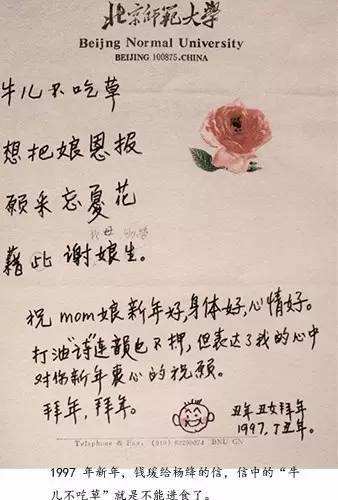 北京師範大學
Beijng Normal University
BEIJING 100875.CHINA
牛儿不吃草
想把娘恩报
願采忘憂花
藉此谢娘生。
祝mom娘新年好,身体好,心情好。
打油"诗"连韻也不押,但表达了我的心中
对你新年衷心的祝願。
拜年,拜年。
丑年丑女拜年
1997,丁丑年。
Telephone & Fax: (010) BNU CN
1997 年新年，钱瑗给杨绛的信，信中的“牛
儿不吃草”就是不能进食了。